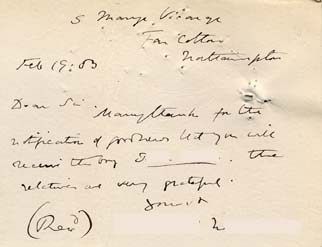 S Marys Vicarage
Far Cotton
Northampton
Feb 19: 03
Dear Sir. Many thanks for the
notification of good news that you will
receive the boy I——. The
relatives are very grateful.
(Revd)